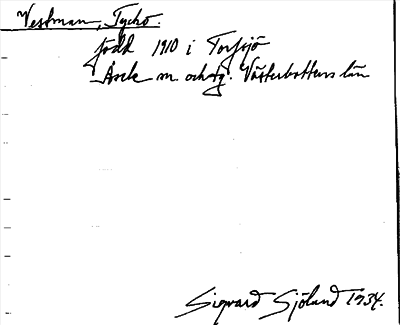 Vestman, Tycho.
född 1910 i Torfsjö
Åsele m. och sg. Västerbottens län
Sigvard Sjöland 1934.